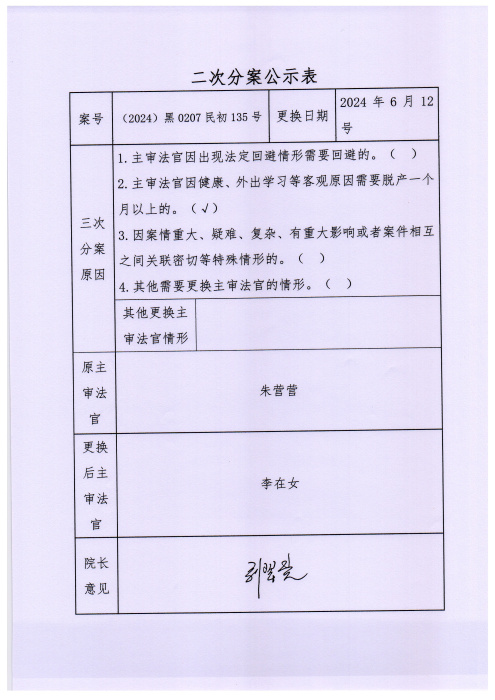 二次分案公示表
案号
（2024）黑 0207 民初 135 号
更换日期
2024 年 6 月 12
号
三次
分案
原因
1.主审法官因出现法定回避情形需要回避的。（ ）
2.主审法官因健康、外出学习等客观原因需要脱产一个
月以上的。（√）
3.因案情重大、疑难、复杂、有重大影响或者案件相互
之间关联密切等特殊情形的。（ ）
4.其他需要更换主审法官的情形。（ ）
其他更换主
审法官情形
原主
审法
官
朱营营
更换
后主
审法
官
李在女
院长
意见